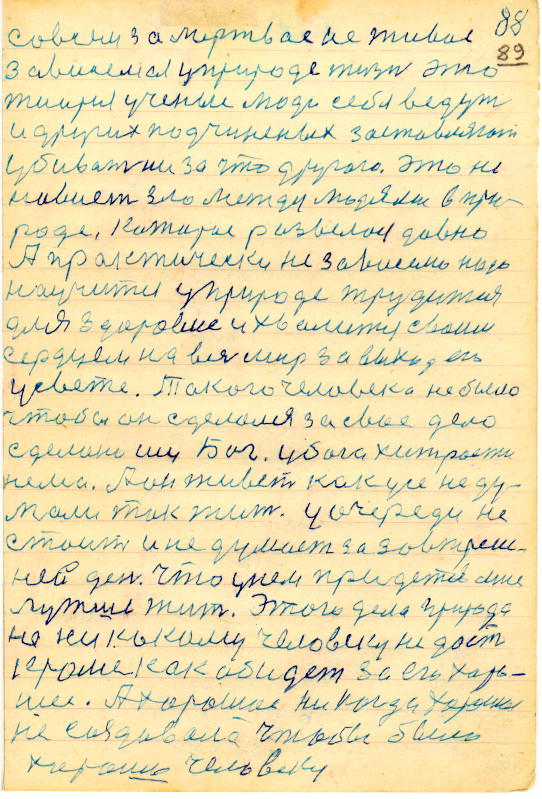 88
89
совсем за мертвае не живое
зависемая уприроде жизн это
ученые люди себя ведут
идругих подчиненых заставляют
убиват ни за что другого. Это не
зло между людями в при-
роде, Катарае развелос давно
А практически не зависемо надо
научится уприроде трудится
для здаровие и хвалится своим
сердцем на вея мир за
усвете. Такого человека небыло
чтобы он сделался за свае дело
сделано им Бог. убога хитрости
нема. Аон живет как усе не ду-
мали так жит. уочереди не
стоит и не думает за завтреш-
ней ден. что унем придется мне
лутше жит. Этого дела природа
на ни какому человеку не даст
кроме как абидет за его харо-
шее. А харошае никогда
не саздавала чтобы было
харошо человеку